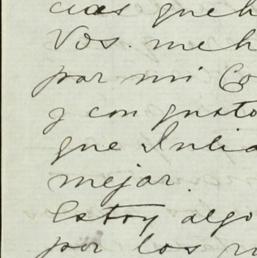 cias que h
Vos. me h
por mi Co
y con gusto
que Julia
mejor.
Estoy algo
por los